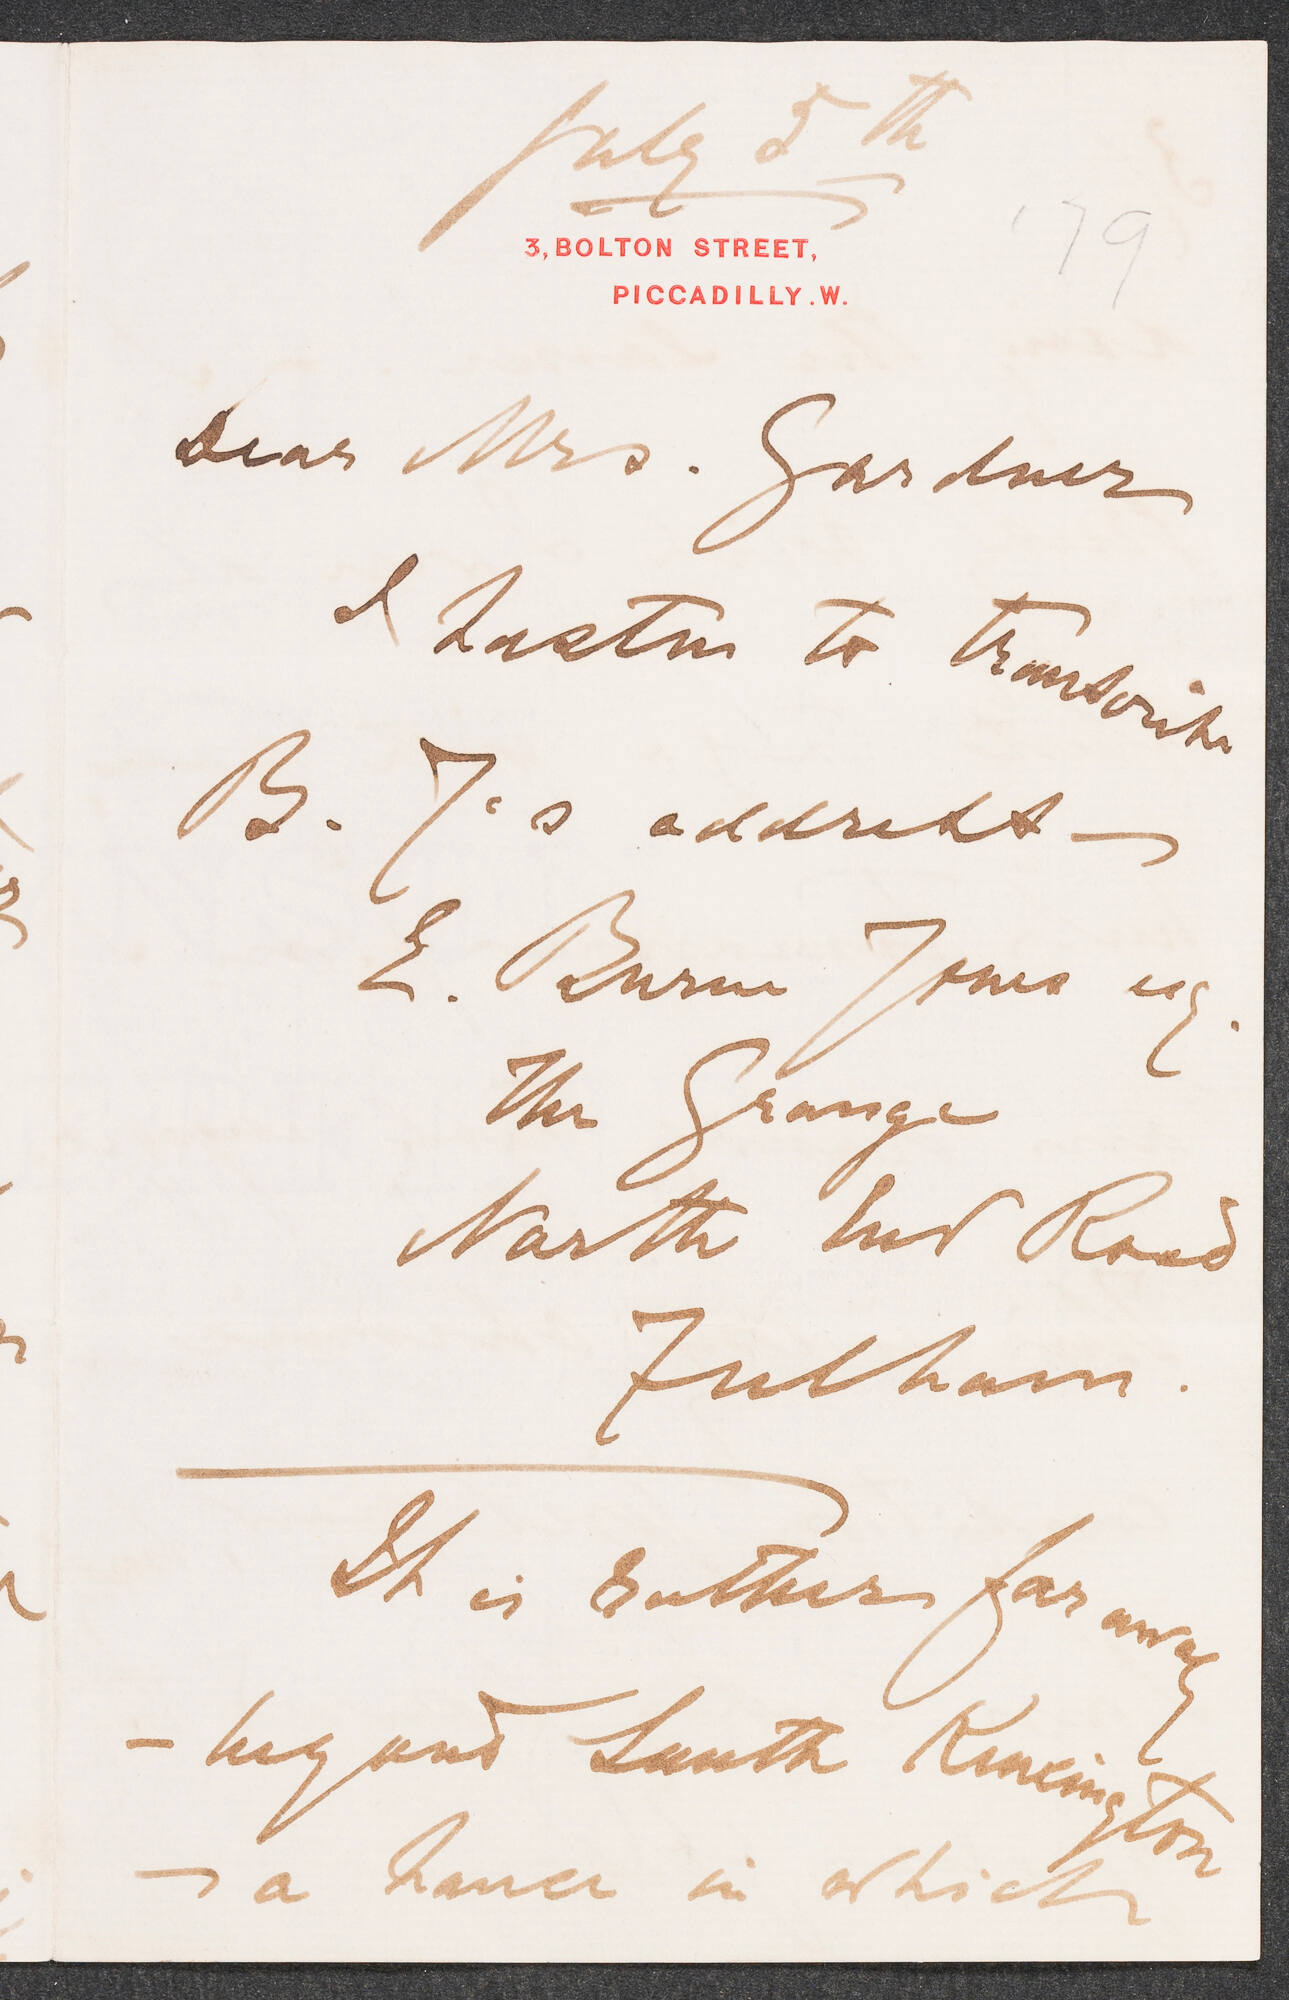 July 5th
'79
3, BOLTON STREET,
PICCADILLY. W.
Dear Mrs. Gardner
I hasten to transcribe
B. J.'s address—
E. Burne Jones esq.
The Grange
North End Road
Fulham.
It is rather far away
— beyond South Kensington
— a house in which